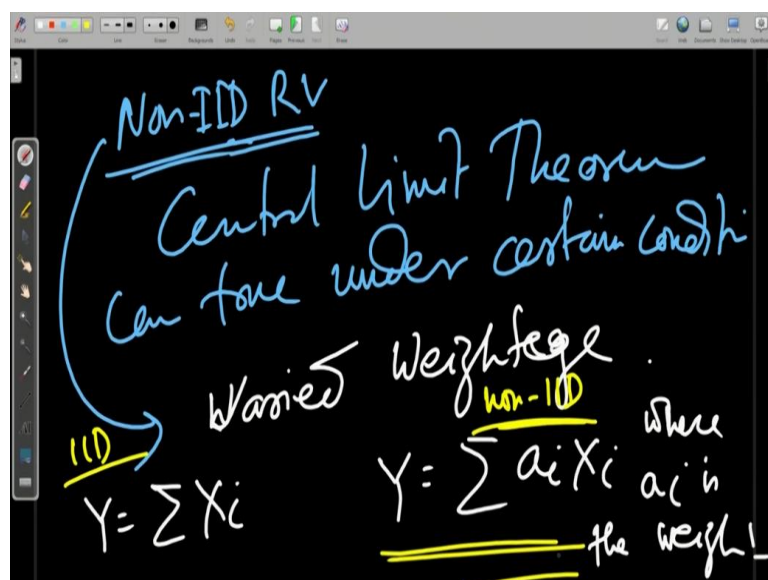 Non-IID RV
Central Limit Theorem
Can true under certain conditi
Varied Weightage.
IID
non-IID
Y = Σ Xi
Y = Σ ai Xi
where
ai is
the weight